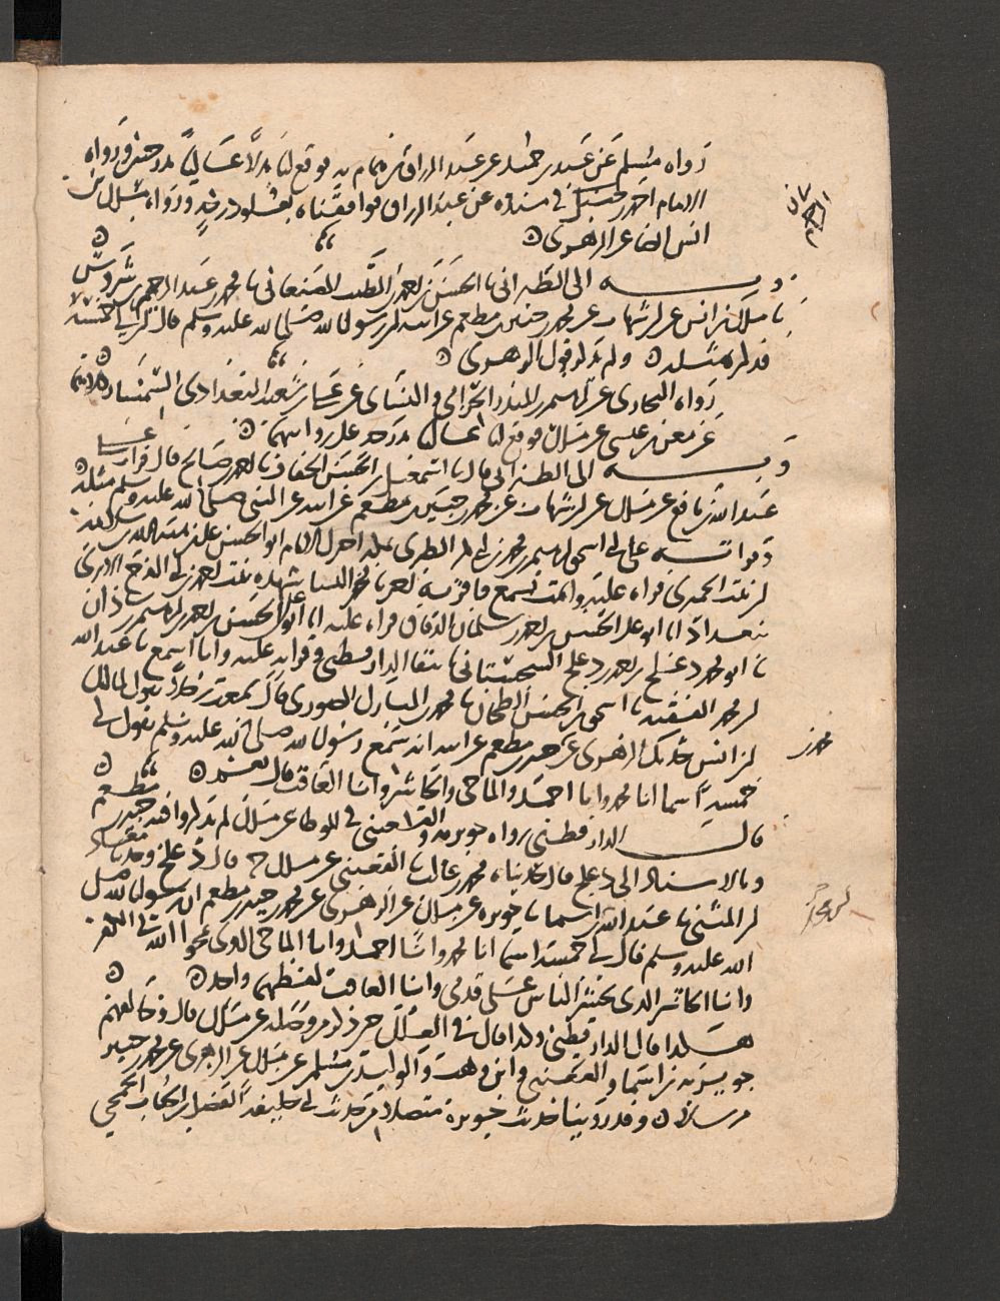 رواه مسلم عن عبد بن حميد عن عبد الرزاق بن همام به فوقع لنا بدلا عاليا بدرجتين ورواه
الامام احمد بن حنبل في مسنده عن عبد الرزاق فوافقناه بعلو درجة ورواه مالك بن
انس ايضا عن الزهري ه
وبه الى الطبراني نا الحسن بن عبد الصنعاني نا محمد بن عبد الرحيم بن شروس
نا مالك بن انس عن ابن شهاب عن محمد بن جبير بن مطعم عن ابيه ان رسول الله صلى الله عليه وسلم قال لي خمسة
فذكر مثله ه ولم يذكر قول الزهري ه
رواه البخاري عن ابرهيم بن المنذر الحزامي والنسائي عن بن شعيب البغدادي
عن معن بن عيسى عن مالك فوقع لنا عاليا بدرجة على روايتهما ه
وبه الى الطبراني قال نا اسمعيل بن الحسن الخفاف نا احمد بن صالح قال قرات على
عبد الله بن نافع عن مالك عن ابن شهاب عن محمد بن جبير بن مطعم عن ابيه عن النبي صلى الله عليه وسلم مثله ه
قرات على ابي اسحق ابرهيم بن محمد بن ابي بكر الطبري بمكة اخبرك الامام ابو الحسن علي بن هبة الله بن سلامة
ابن بنت الجميزي قراءة عليه وانت تسمع فاقر به نعم انا فخر النسا شهدة بنت احمد بن ابي الفرج الابري
ببغداد انا ابو علي الحسن بن احمد بن سلمان الدقاق قراءة عليه انا ابو علي الحسن بن احمد بن ابرهيم بن شاذان
نا ابو محمد دعلج بن احمد بن دعلج السجستاني نا بانتقا الدارقطني وقراءته عليه وانا اسمع نا عبد الله
ابن محمد الفقيه نا اسحق بن الحسن الطحان نا محمد بن المبارك الصوري قال سمعت رجلا يقول لمالك
ابن انس حدثك الزهري عن محمد بن جبير بن مطعم عن ابيه انه سمع رسول الله صلى الله عليه وسلم يقول لي
خمسة اسما انا محمد وانا احمد والماحي والحاشر وانا العاقب قال نعم ه
قال الدارقطني رواه جويرية والقعنبي في الموطا عن مالك لم يذكروا فيه جبير بن مطعم
وبالاسناد الى دعلج قال حدثنا محمد بن غالب نا القعنبي عن مالك ح قال دعلج وحدثنا معاذ
ابن المثنى نا عبد الله بن اسما نا جويرية عن مالك عن الزهري عن محمد بن جبير بن مطعم ان رسول الله صلى
الله عليه وسلم قال لي خمسة اسما انا محمد وانا احمد وانا الماحي الذي يمحوا الله بي الكفر
وانا الحاشر الذي يحشر الناس على قدمي وانا العاقب لفظهما واحد ه
هكذا قال الدارقطني وكذا قال في العلل حين ذكر من وصله عن مالك قال وخالفهم
جويرية بن اسما والقعنبي وابن وهب والوليد بن مسلم عن مالك عن الزهري عن محمد بن جبير
مرسلا ه وقد روينا حديث جويرية متصلا من حديث ابي خليفة الفضل بن الحباب الجمحي